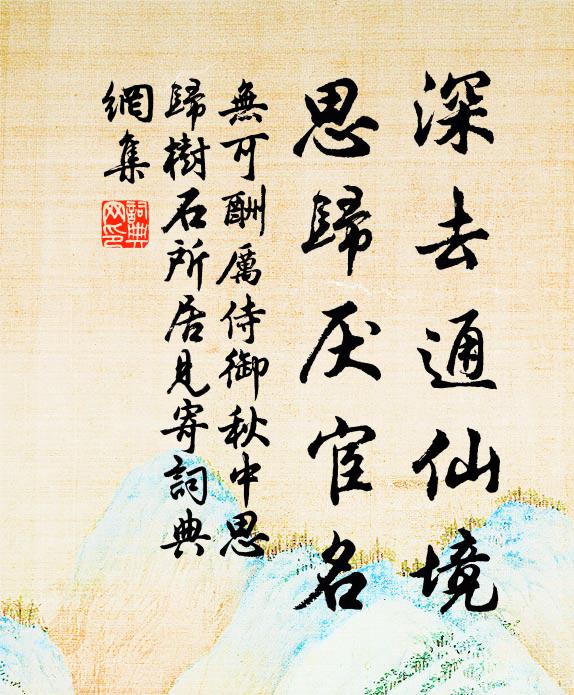 深去通仙境
思歸厌宦名
無可酬厲侍御秋中思
歸樹石所居見寄詞典
網集
詞典
网印